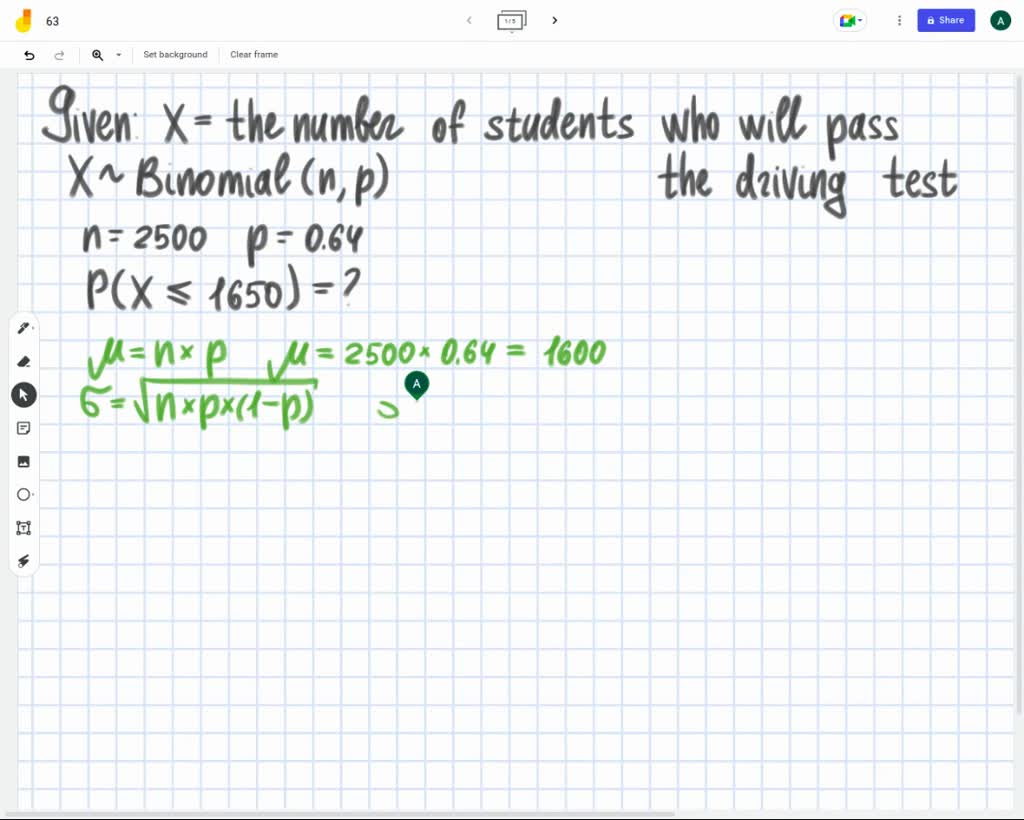 63
1/5
Share
A
Set background
Clear frame
Given: X = the number of students who will pass
the driving test
X ~ Binomial (n, p)
n = 2500 p = 0.64
P(X ⩽ 1650) = ?
μ = n × p μ = 2500 × 0.64 = 1600
A
σ = √n × p × (1 - p)